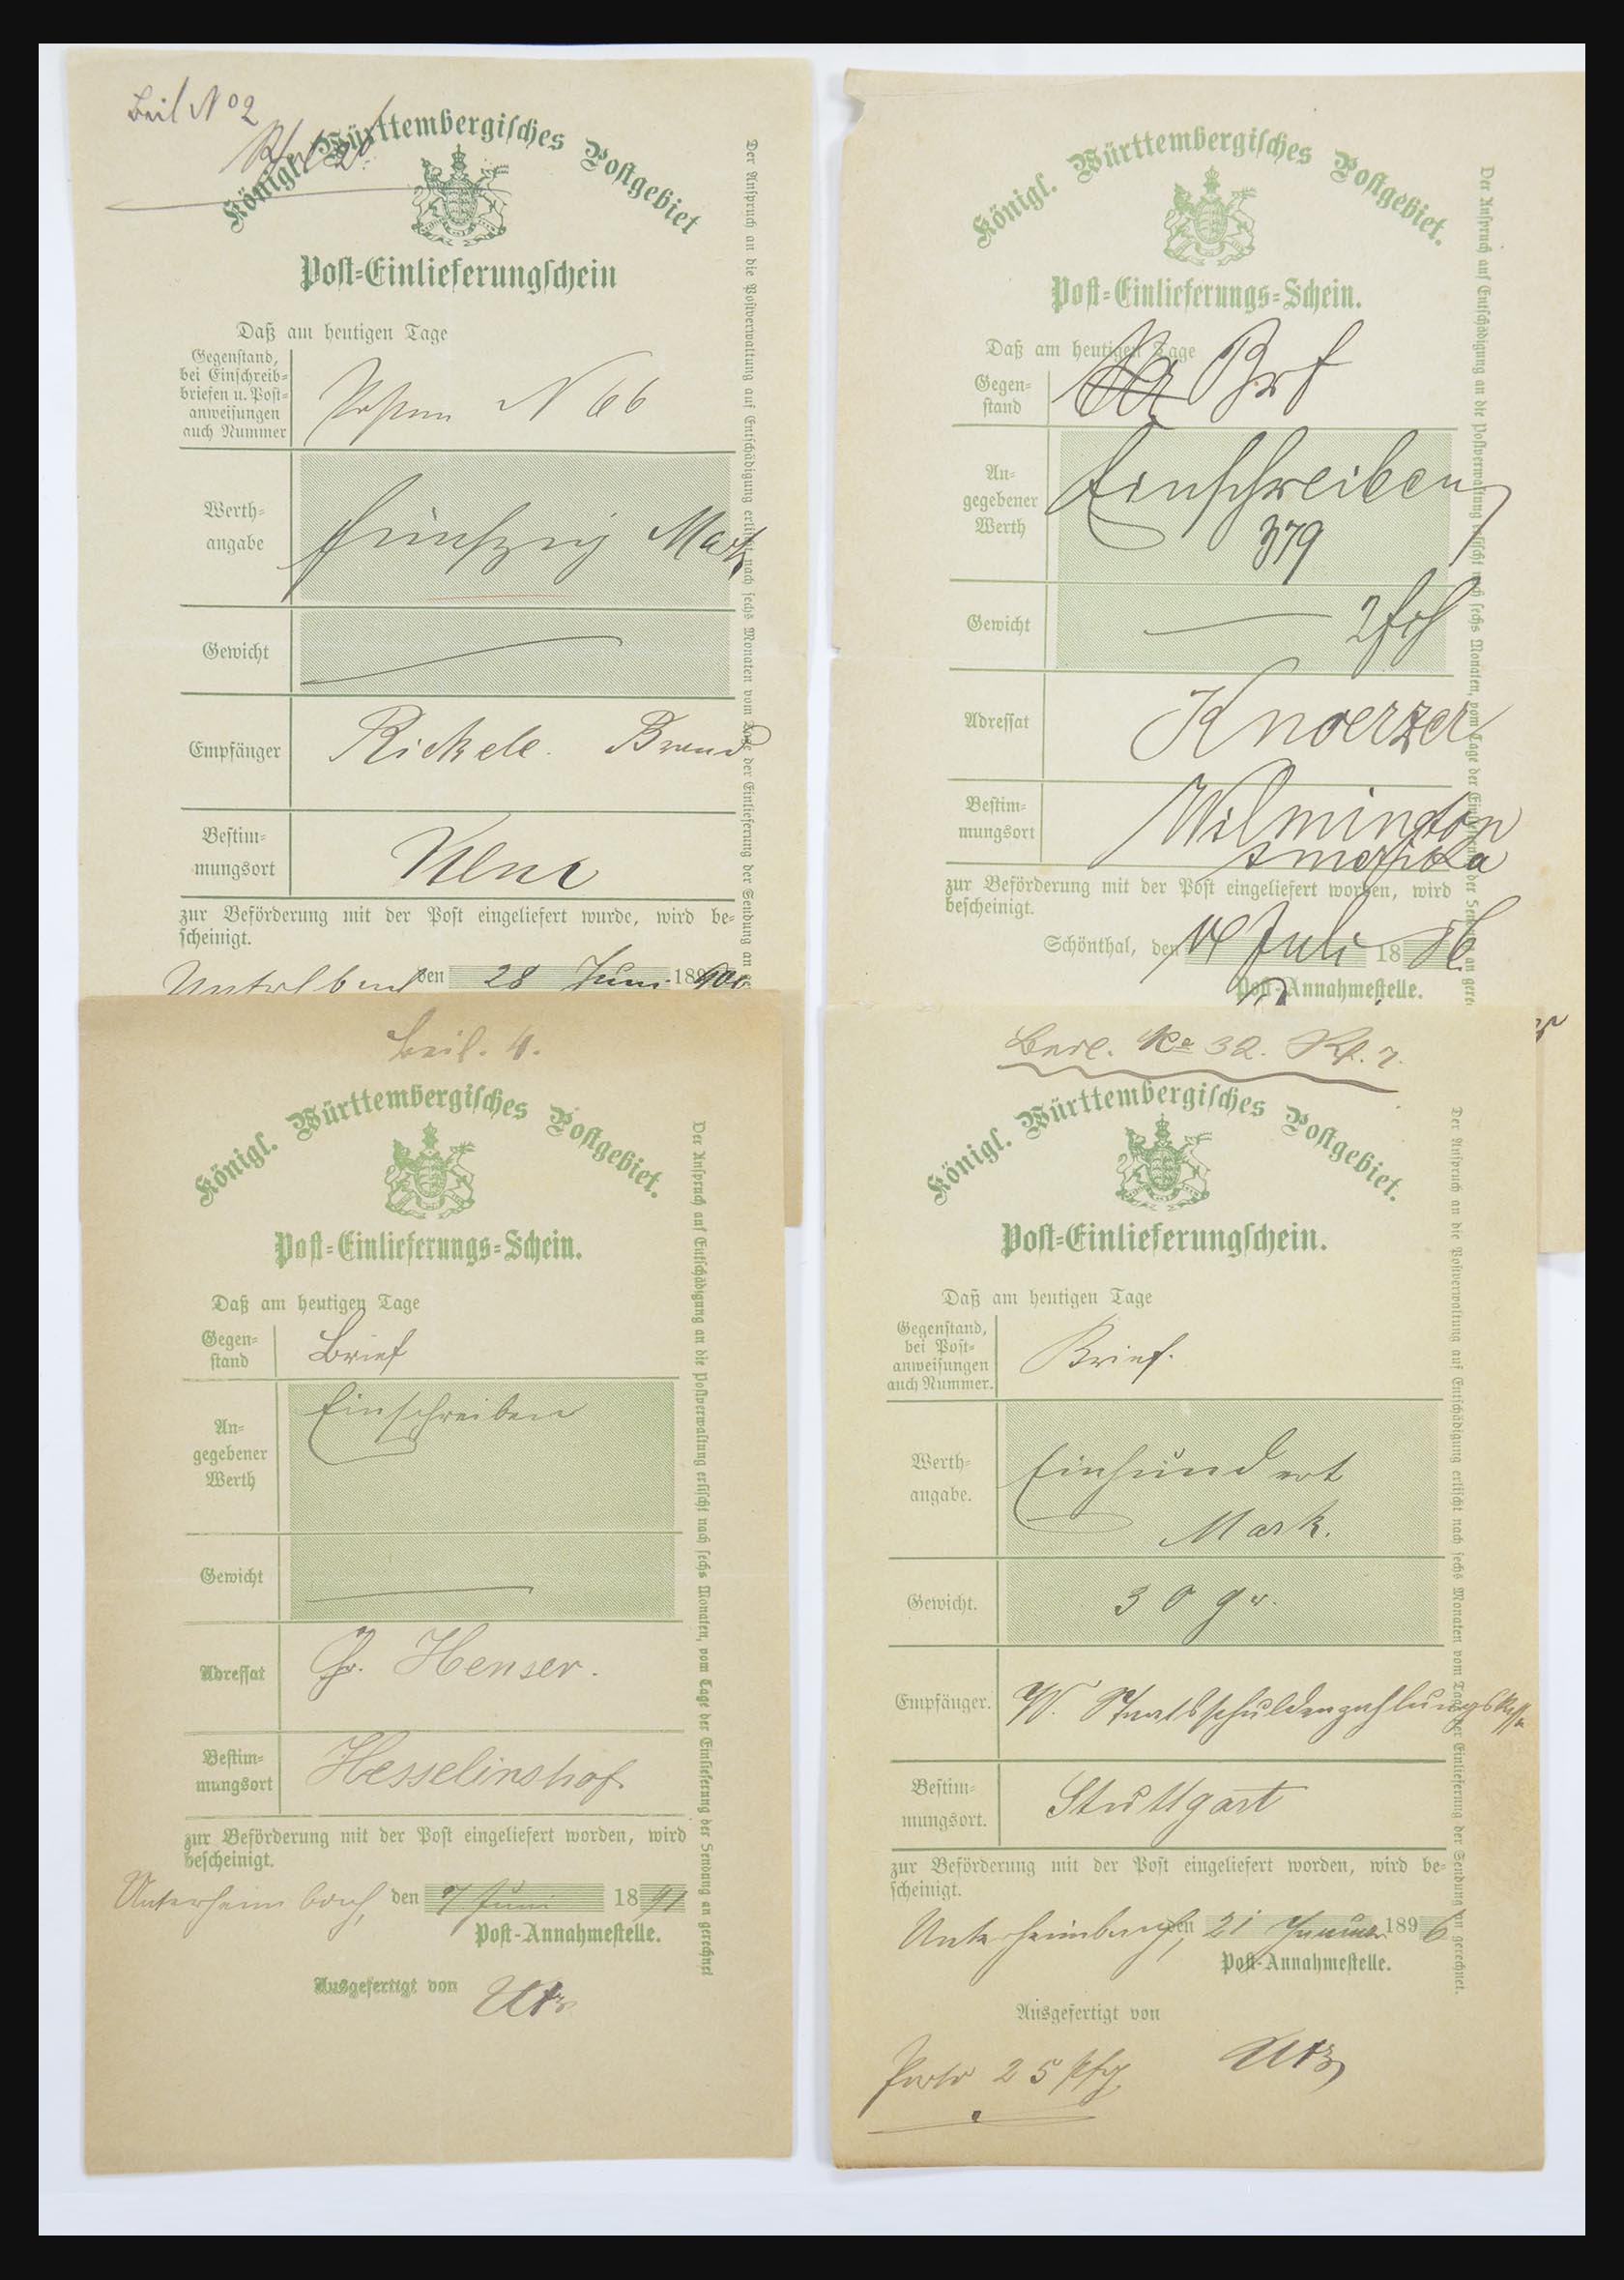 Beil No 2
Königl. Württembergisches Postgebiet
Post-Einlieferungschein
Daß am heutigen Tage
Gegenstand,
bei Einschreib-
briefen u. Post-
anweisungen
auch Nummer
N 66
Werth-
angabe
fünfzig Mark
Gewicht
Empfänger
Rickele.
Bestim-
mungsort
zur Beförderung mit der Post eingeliefert wurde, wird be-
scheinigt.
den 28 Juni 189
Der Anspruch an die Postverwaltung auf Entschädigung erlischt nach sechs Monaten vom Tage der Einlieferung der Sendung an
Königl. Württembergisches Postgebiet.
Post-Einlieferungs-Schein.
Daß am heutigen Tage
Gegen-
stand
Brf
An-
gegebener
Werth
Einschreiben
379
Gewicht
Adressat
Knoerzer
Bestim-
mungsort
Wilmington
Amerika
zur Beförderung mit der Post eingeliefert worden, wird
bescheinigt.
Schönthal, den Juli 18 86
Post-Annahmestelle.
Der Anspruch auf Entschädigung an die Postverwaltung erlischt nach sechs Monaten, vom Tage der Einlieferung der Sendung an gere
Beil. 4.
Königl. Württembergisches Postgebiet.
Post-Einlieferungs-Schein.
Daß am heutigen Tage
Gegen-
stand
Brief
An-
gegebener
Werth
Einschreiben
Gewicht
Adressat
Chr. Henser.
Bestim-
mungsort
Hesselinshof.
zur Beförderung mit der Post eingeliefert worden, wird
bescheinigt.
Unterheimbach, den 7 Juni 18 91
Post-Annahmestelle.
Ausgefertigt von Utz
Der Anspruch auf Entschädigung an die Postverwaltung erlischt nach sechs Monaten, vom Tage der Einlieferung der Sendung an gerechnet
Beil. No 32.
Königl. Württembergisches Postgebiet.
Post-Einlieferungschein.
Daß am heutigen Tage
Gegenstand,
bei Post-
anweisungen
auch Nummer.
Brief.
Werth-
angabe.
Einhundert
Mark.
Gewicht.
30 gr.
Empfänger.
W. Staatsschuldenzahlungskasse
Bestim-
mungsort.
Stuttgart
zur Beförderung mit der Post eingeliefert worden, wird be-
scheinigt.
Unterheimbach, den 21 Januar 189 6
Post-Annahmestelle.
Ausgefertigt von
Utz
Porto 25 Pfg.
Der Anspruch an die Postverwaltung auf Entschädigung erlischt nach sechs Monaten vom Tage der Einlieferung der Sendung an gerechnet.